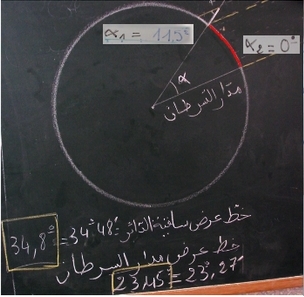 α₁ = 11,3°
α₂ = 0°
α
مدار السرطان
خط عرض ساقية الدائر: 34°48' = 34,8°
خط عرض مدار السرطان
23,45 = 23°,27'